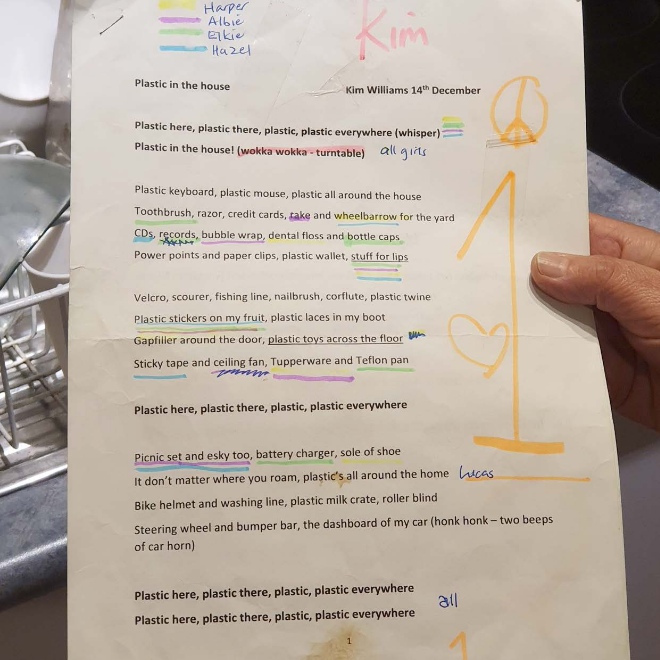 Harper
Albie
Elkie
Hazel
Kim
Plastic in the house
Kim Williams 14th December
Plastic here, plastic there, plastic, plastic everywhere (whisper)
Plastic in the house! (wokka wokka - turntable) all girls
Plastic keyboard, plastic mouse, plastic all around the house
Toothbrush, razor, credit cards, rake and wheelbarrow for the yard
CDs, records, bubble wrap, dental floss and bottle caps
Power points and paper clips, plastic wallet, stuff for lips
Velcro, scourer, fishing line, nailbrush, corflute, plastic twine
Plastic stickers on my fruit, plastic laces in my boot
Gapfiller around the door, plastic toys across the floor
Sticky tape and ceiling fan, Tupperware and Teflon pan
Plastic here, plastic there, plastic, plastic everywhere
Picnic set and esky too, battery charger, sole of shoe
It don't matter where you roam, plastic's all around the home Lucas
Bike helmet and washing line, plastic milk crate, roller blind
Steering wheel and bumper bar, the dashboard of my car (honk honk – two beeps
of car horn)
Plastic here, plastic there, plastic, plastic everywhere
Plastic here, plastic there, plastic, plastic everywhere
all
1
1
1